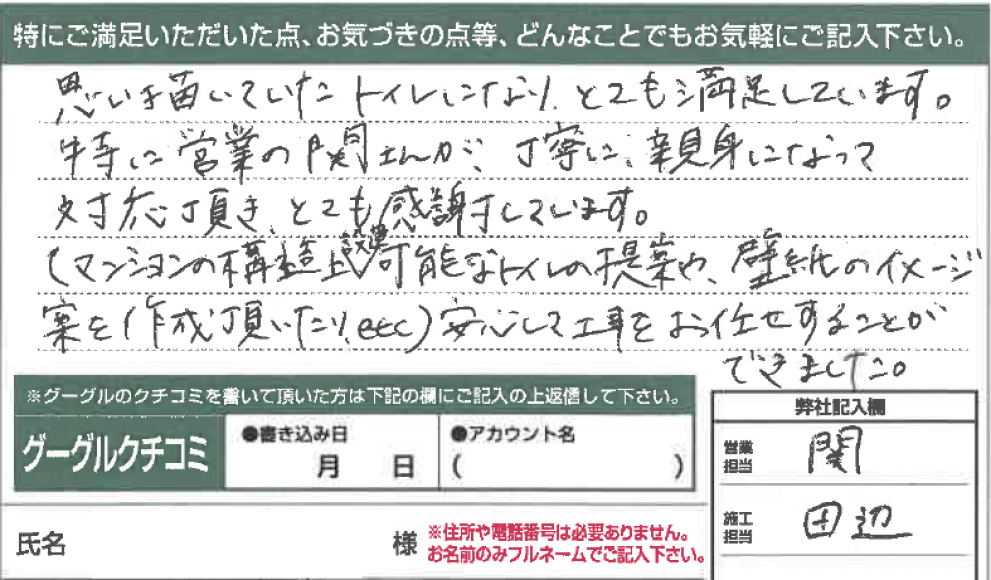 特にご満足いただいた点、お気づきの点等、どんなことでもお気軽にご記入下さい。
思い描いていたトイレになり、とても満足しています。
特に営業の関さんが、丁寧に、親身になって
対応頂き、とても感謝しています。
(マンションの構造上設置可能なトイレの提案や、壁紙のイメージ
案を作成頂いたり、etc)安心して工事をお任せすることが
できました。
※グーグルのクチコミを書いて頂いた方は下記の欄にご記入の上返信して下さい。
グーグルクチコミ
●書き込み日
月 日
●アカウント名
( )
弊社記入欄
営業担当 関
施工担当 田辺
氏名 様
※住所や電話番号は必要ありません。
お名前のみフルネームでご記入下さい。